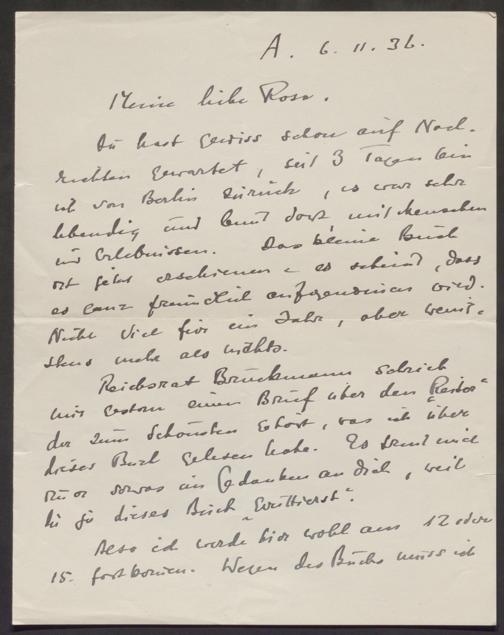 A. 6. 11. 36.
Meine liebe Rosa.
Du hast gewiss schon auf Nach-
richten gewartet, seit 3 Tagen bin
ich von Berlin zurück, es war sehr
lebendig und bunt dort mit Menschen
und Erlebnissen. Das kleine Buch
ist jetzt erschienen – es scheint, dass
es ganz freundlich aufgenommen wird.
Nicht viel für ein Jahr, aber wenig-
stens mehr als nichts.
Reichsrat Bruckmann schrieb
mir gestern einen Brief über den
der zum Schönsten gehört, was ich über
dieses Buch gelesen habe. Es freut mich
sowas in Gedanken an dich, weil
du ja dieses Buch
Also ich werde hier wohl am 12 oder
15. fortkommen. Wegen des Buchs muss ich